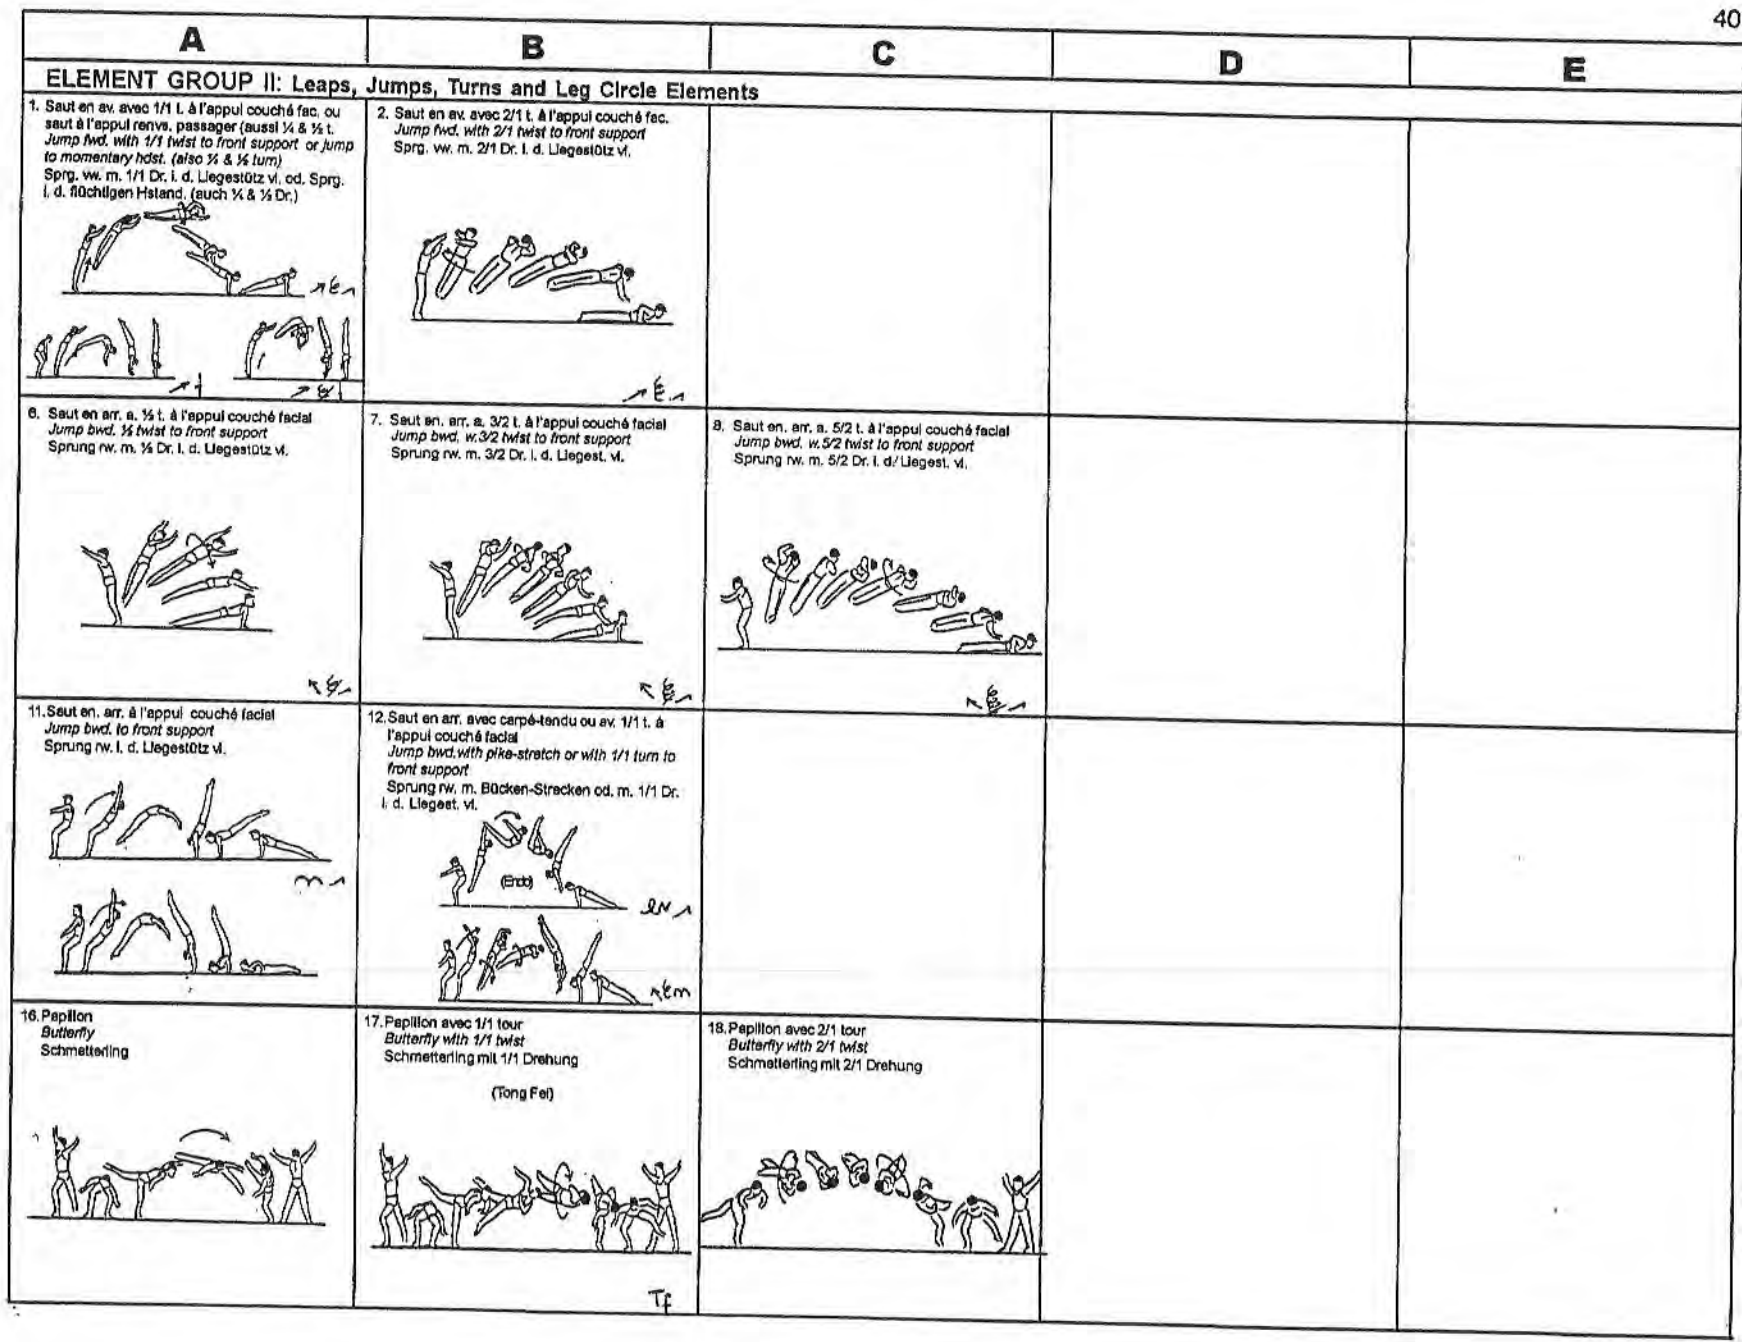 40
A B C D E
ELEMENT GROUP II: Leaps, Jumps, Turns and Leg Circle Elements
1. Saut en av. avec 1/1 t. à l'appui couché fac. ou
saut à l'appui renvs. passager (aussi ¼ & ½ t.
Jump fwd. with 1/1 twist to front support or jump
to momentary hdst. (also ¼ & ½ turn)
Sprg. vw. m. 1/1 Dr. i. d. Liegestütz vl. od. Sprg.
i. d. flüchtigen Hstand. (auch ¼ & ½ Dr.)
2. Saut en av. avec 2/1 t. à l'appui couché fac.
Jump fwd. with 2/1 twist to front support
Sprg. vw. m. 2/1 Dr. i. d. Liegestütz vl.
6. Saut en arr. a. ½ t. à l'appui couché facial
Jump bwd. ½ twist to front support
Sprung rw. m. ½ Dr. i. d. Liegestütz vl.
7. Saut en. arr. a. 3/2 t. à l'appui couché facial
Jump bwd. w.3/2 twist to front support
Sprung rw. m. 3/2 Dr. i. d. Liegest. vl.
8. Saut en. arr. a. 5/2 t. à l'appui couché facial
Jump bwd. w.5/2 twist to front support
Sprung rw. m. 5/2 Dr. i. d./ Liegest. vl.
11.Saut en. arr. à l'appui couché facial
Jump bwd. to front support
Sprung rw. i. d. Liegestütz vl.
12.Saut en arr. avec carpé-tendu ou av. 1/1 t. à
l'appui couché facial
Jump bwd.with pike-stretch or with 1/1 turn to
front support
Sprung rw. m. Bücken-Strecken od. m. 1/1 Dr.
i. d. Liegest. vl.
(Endo)
16.Papillon
Butterfly
Schmetterling
17.Papillon avec 1/1 tour
Butterfly with 1/1 twist
Schmetterling mit 1/1 Drehung
(Tong Fei)
Tf
18.Papillon avec 2/1 tour
Butterfly with 2/1 twist
Schmetterling mit 2/1 Drehung